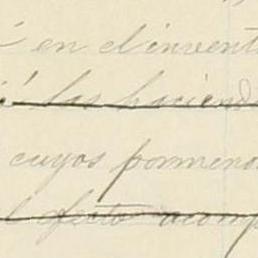 en el invent
las haciend
cuyos pormeno
el efecto acomp